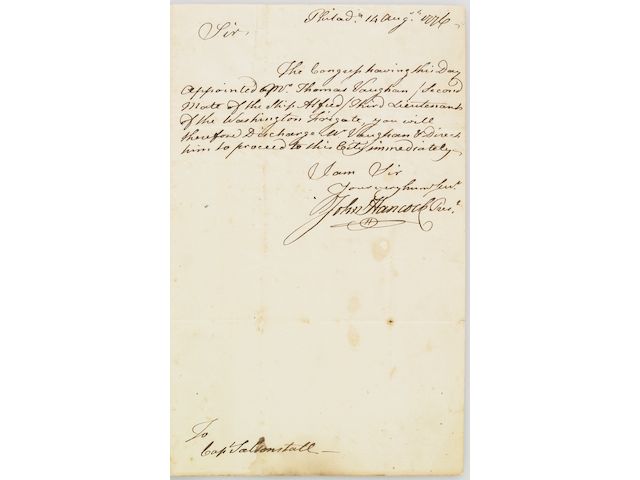 Philad.ª 14 Aug.ˢᵗ 1776.
Sir,
The Congress having this Day
appointed Mʳ Thomas Vaughan (Second
Mate of the Ship Alfred) Third Lieutenant
of the Washington Frigate, you will
therefore Discharge Mʳ Vaughan & Direct
him to proceed to this City immediately
I am Sir
Your very hum Serᵗ.
John Hancock Presᵗ.
To
Capᵗ Saltonstall —